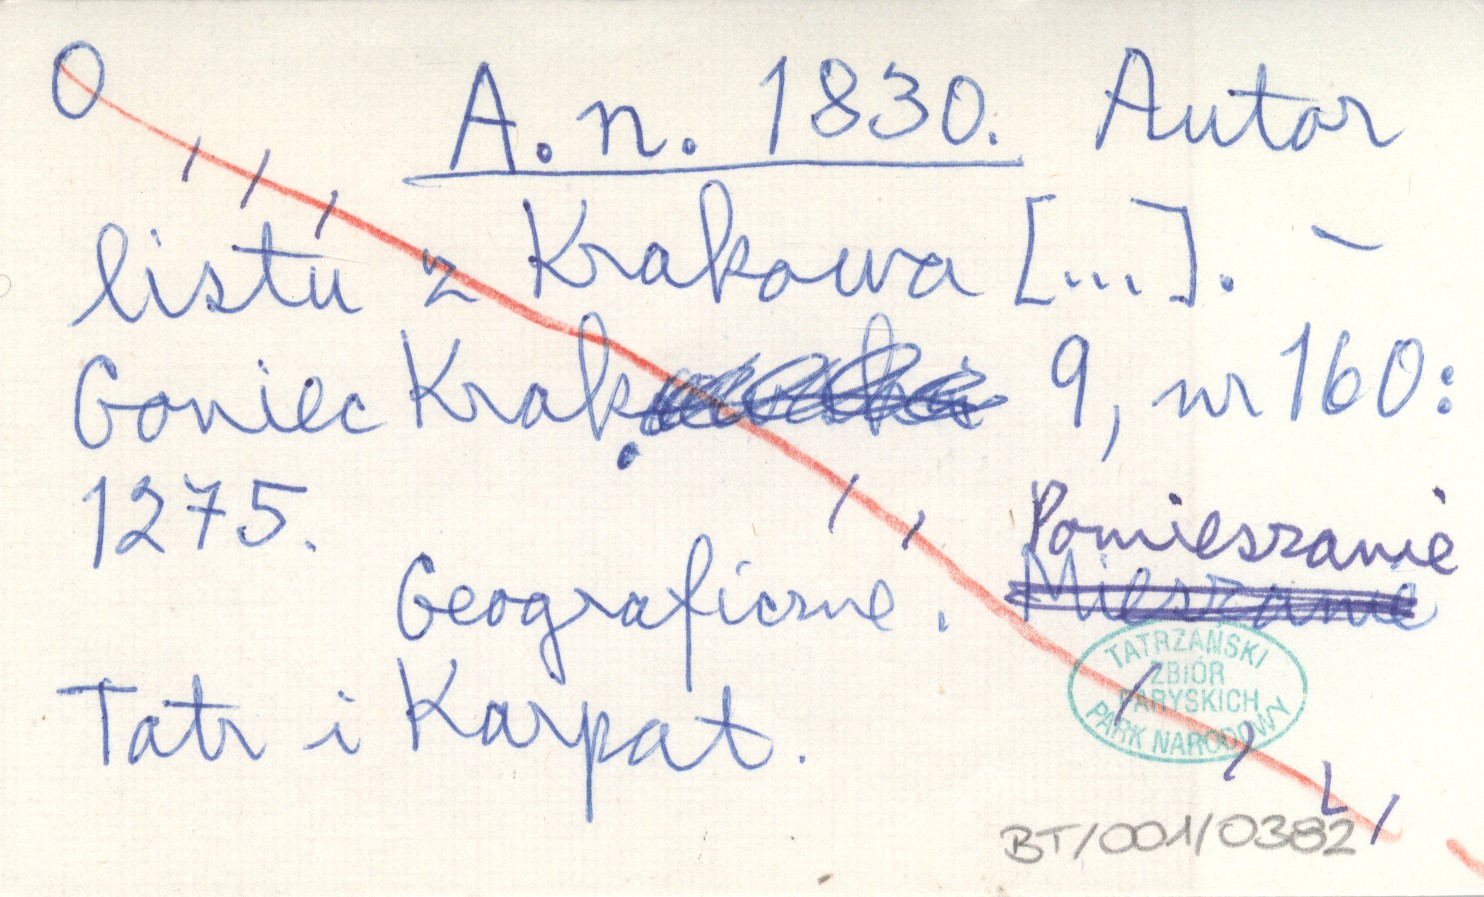 O A. n. 1830. Autor
listu z Krakowa [...]. –
Goniec Krak. 9, nr 160:
1275.
Pomieszanie
Geograficzne. Mieszanie
Tatr i Karpat.
TATRZAŃSKI
ZBIÓR
PARYSKICH
PARK NARODOWY
BT/001/0382